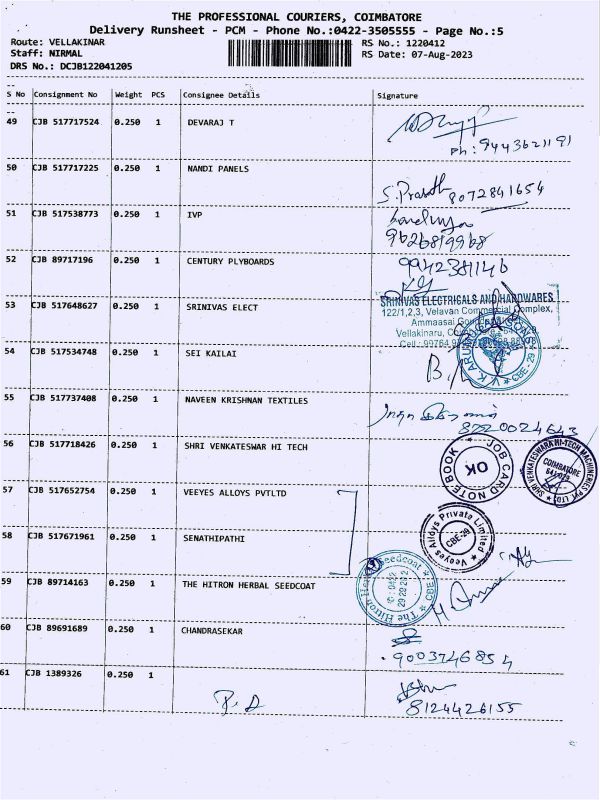 THE PROFESSIONAL COURIERS, COIMBATORE
Delivery Runsheet - PCM - Phone No.:0422-3505555 - Page No.:5
Route: VELLAKINAR RS No.: 1220412
Staff: NIRMAL RS Date: 07-Aug-2023
DRS No.: DCJB122041205
S No Consignment No Weight PCS Consignee Details Signature
49 CJB 517717524 0.250 1 DEVARAJ T
Ph: 9443621191
50 CJB 517717225 0.250 1 NANDI PANELS
8072841654
51 CJB 517538773 0.250 1 IVP
9626819968
52 CJB 89717196 0.250 1 CENTURY PLYBOARDS 9942381146
53 CJB 517648627 0.250 1 SRINIVAS ELECT
SRINIVAS ELECTRICALS AND HARDWARES
122/1,2,3, Velavan Commercial Complex,
Ammaasai
Vellakinaru,
CBE-29
54 CJB 517534748 0.250 1 SEI KAILAI
55 CJB 517737408 0.250 1 NAVEEN KRISHNAN TEXTILES
8220024643
56 CJB 517718426 0.250 1 SHRI VENKATESWAR HI TECH
JOB CARD NOTE BOOK
OK
SHRI VENKATESWARA HI-TECH MACHINERIES PVT. LTD.
COIMBATORE
57 CJB 517652754 0.250 1 VEEYES ALLOYS PVTLTD
Veeyes Alloys Private Limited
CBE-29
58 CJB 517671961 0.250 1 SENATHIPATHI
59 CJB 89714163 0.250 1 THE HITRON HERBAL SEEDCOAT
The Hitron Herbal Seedcoat
CBE
60 CJB 89691689 0.250 1 CHANDRASEKAR
9003746854
61 CJB 1389326 0.250 1
8124426155